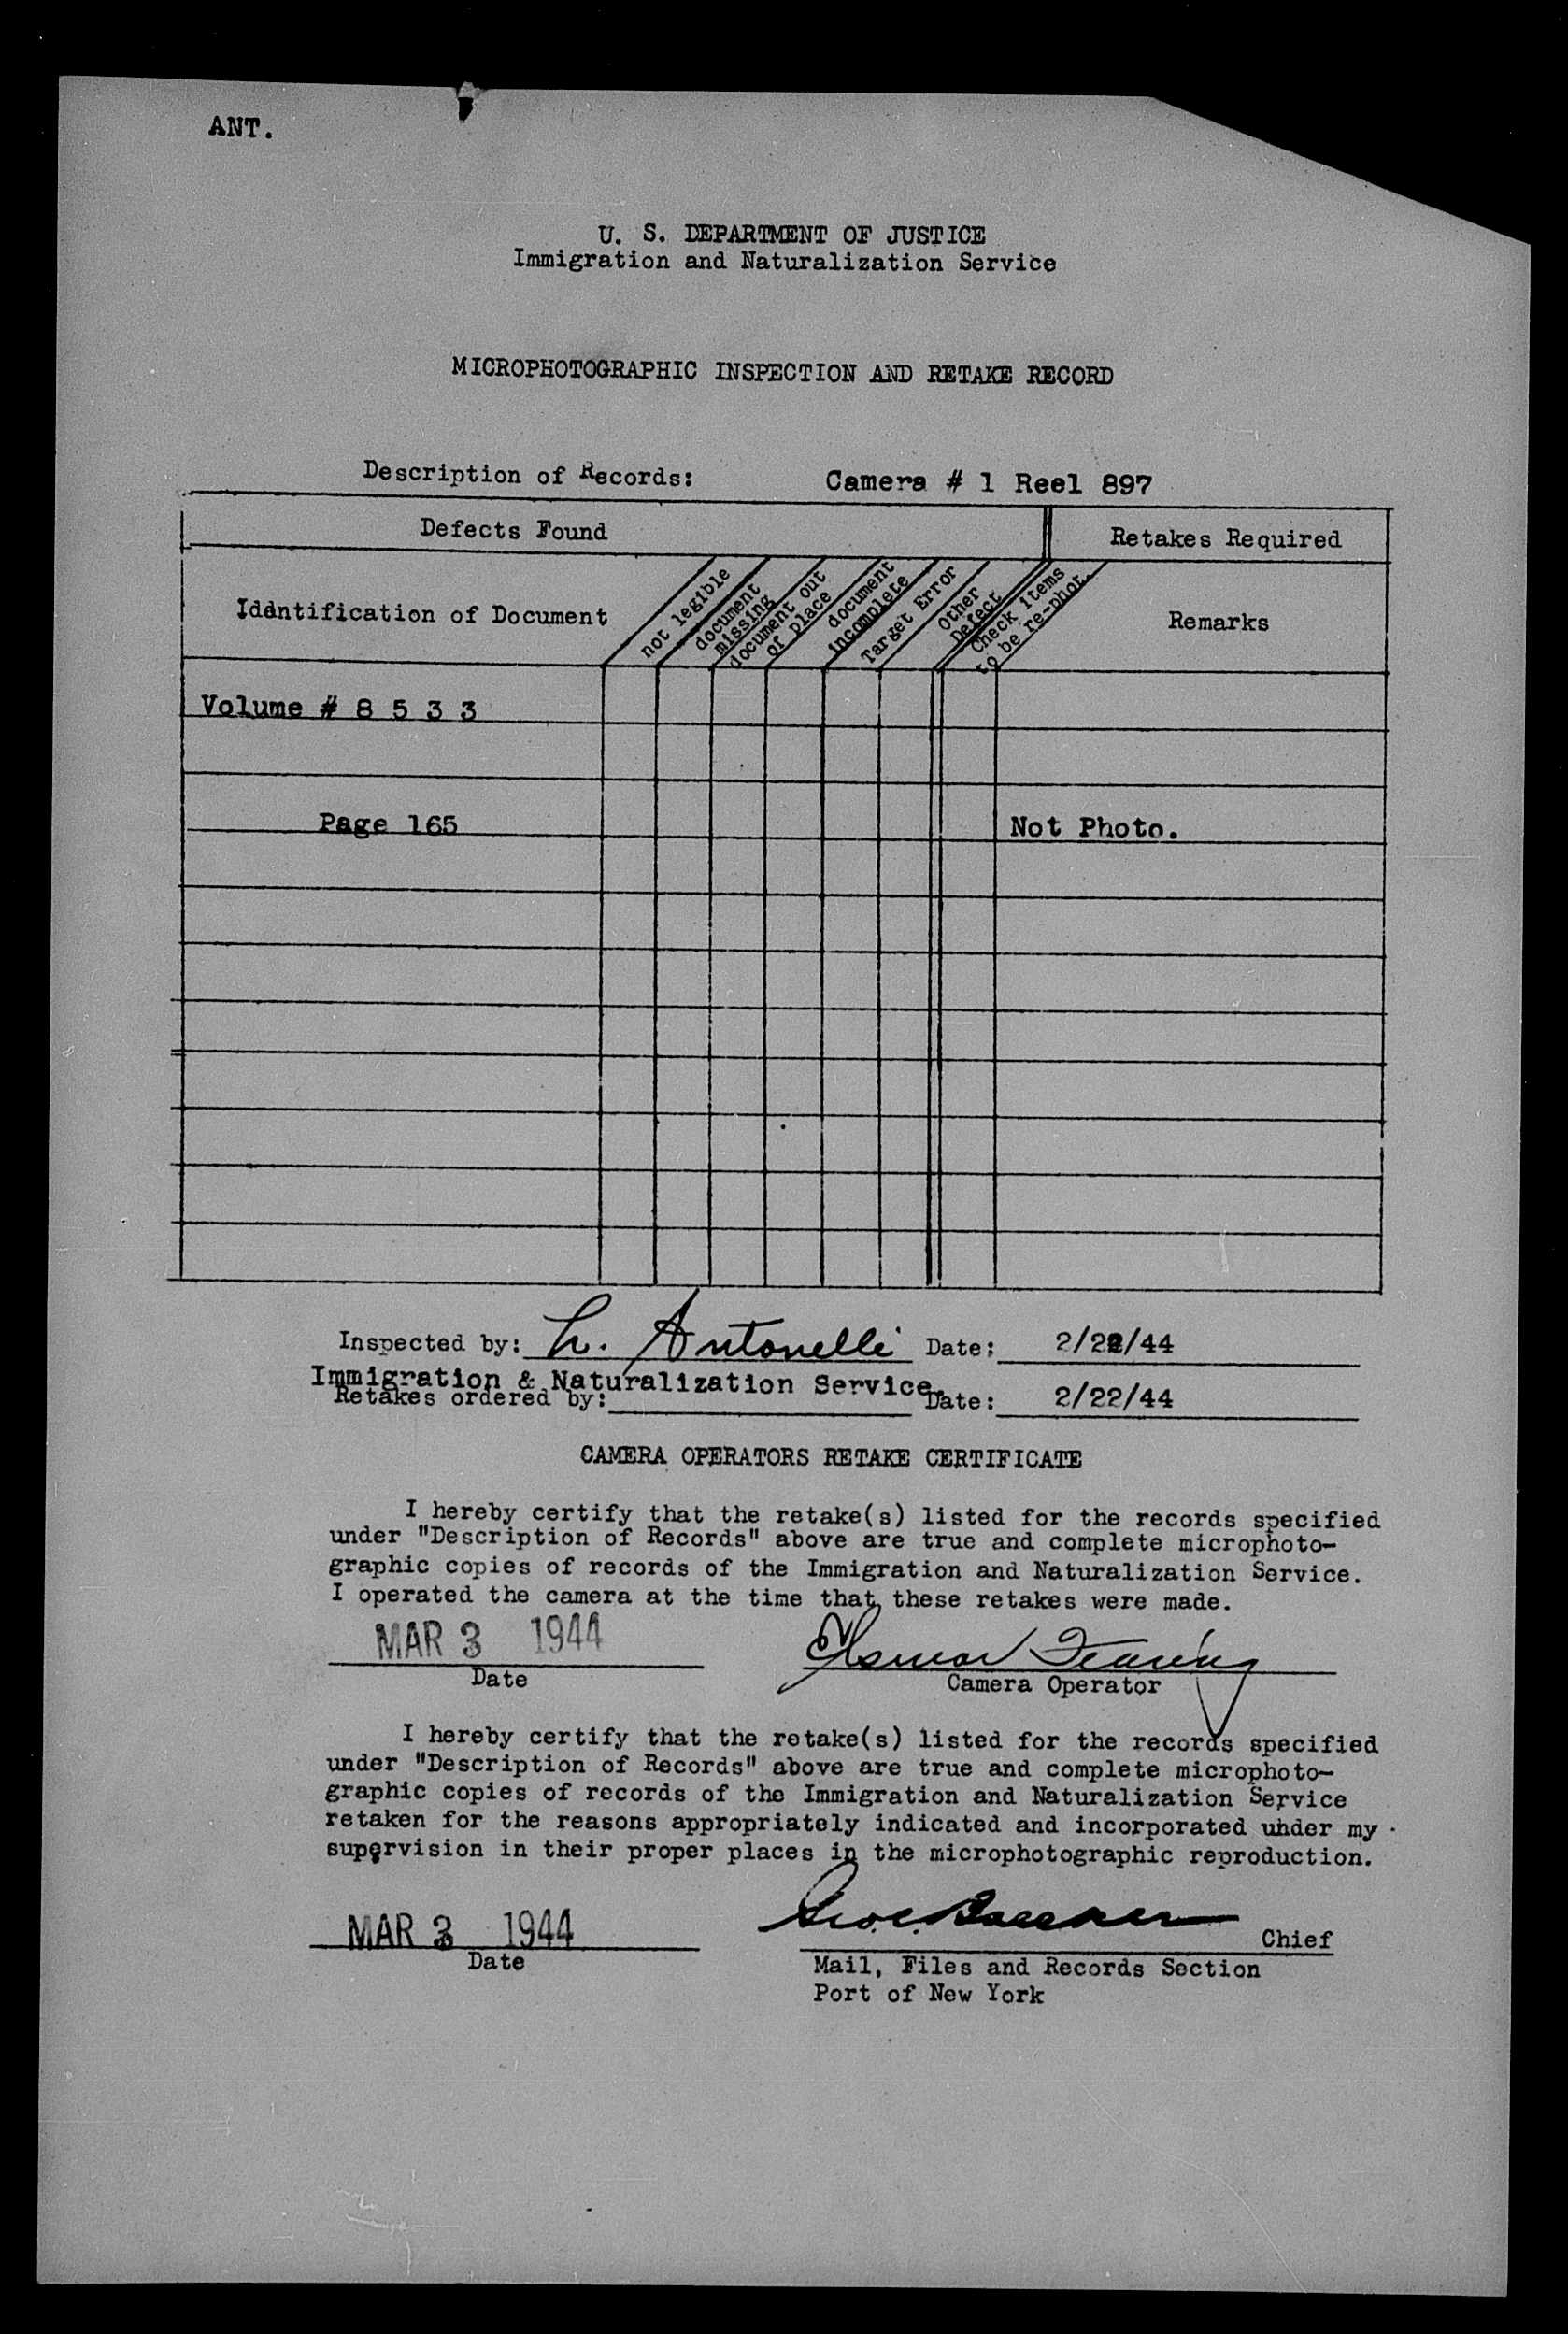 ANT.
U. S. DEPARTMENT OF JUSTICE
Immigration and Naturalization Service
MICROPHOTOGRAPHIC INSPECTION AND RETAKE RECORD
Description of Records: Camera # 1 Reel 897
Defects Found Retakes Required
Idдntification of Document
not legible
document missing
document out of place
document incomplete
Target Error
Other Defect
Check items to be re-phot.
Remarks
Volume # 8 5 3 3
Page 165 Not Photo.
Inspected by: L. Antonelli Date: 2/22/44
Immigration & Naturalization Service.
Retakes ordered by: Date: 2/22/44
CAMERA OPERATORS RETAKE CERTIFICATE
I hereby certify that the retake(s) listed for the records specified
under "Description of Records" above are true and complete microphoto-
graphic copies of records of the Immigration and Naturalization Service.
I operated the camera at the time that these retakes were made.
MAR 3 1944
Date Camera Operator
I hereby certify that the retake(s) listed for the records specified
under "Description of Records" above are true and complete microphoto-
graphic copies of records of the Immigration and Naturalization Service
retaken for the reasons appropriately indicated and incorporated under my
supervision in their proper places in the microphotographic reproduction.
MAR 3 1944 Chief
Date Mail, Files and Records Section
Port of New York